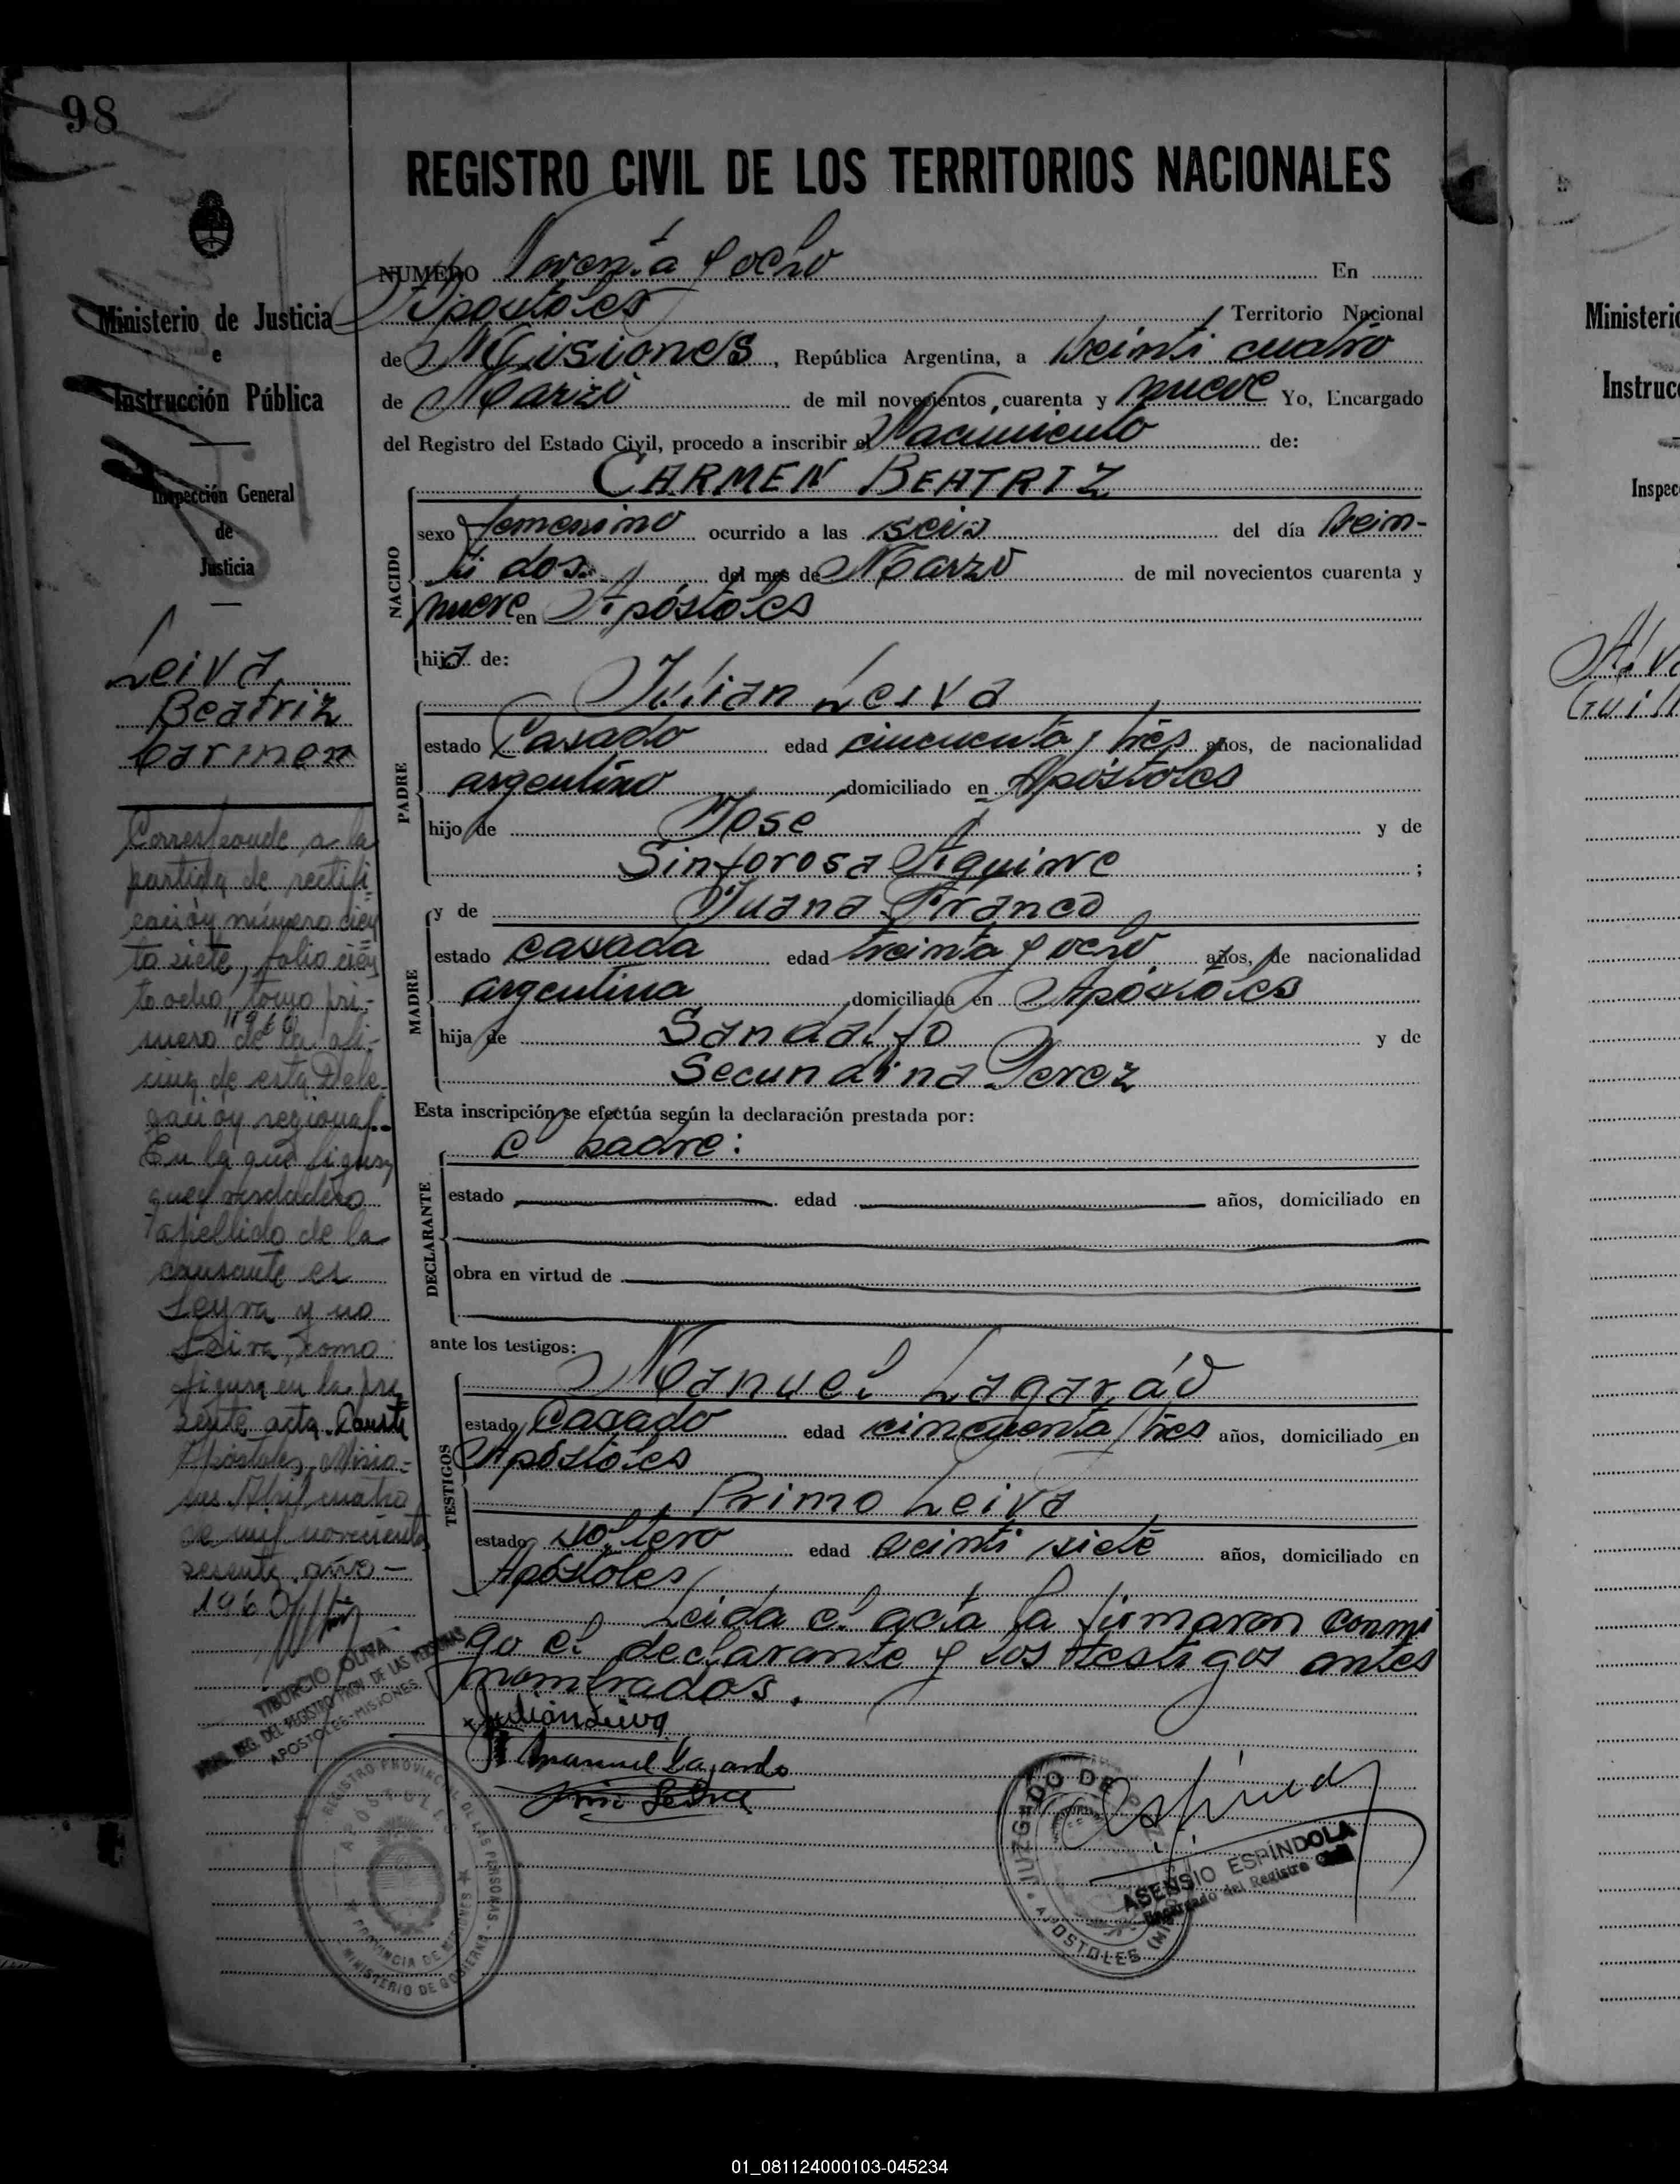 98
REGISTRO CIVIL DE LOS TERRITORIOS NACIONALES
Ministerio de Justicia
e
Instrucción Pública
Inspección General
de
Justicia
Leiva
Beatriz
Carmen
Corresponde a la
partida de rectifi-
cación número cien
to siete, folio cien
to ocho, tomo pri-
mero "1960" de la ofi-
cina de esta Dele-
gación regional.
En la que figura
que el verdadero
apellido de la
causante es
Leyva y no
Leiva, como
figura en la pre
sente acta. Conste
Apóstoles, Misio-
nes Abril cuatro
de mil novecientos
sesenta año-
1960
TIBURCIO OLIVA
REG. DEL REGISTRO PROV. DE LAS PERSONAS
APOSTOLES-MISIONES
REGISTRO PROVINCIAL DE LAS PERSONAS
APOSTOLES
PROVINCIA DE MISIONES
MINISTERIO DE GOBIERNO
NUMERO Noventa y ocho En
Apostoles Territorio Nacional
de Misiones, República Argentina, a Veinti cuatro
de Marzo de mil novecientos cuarenta y nueve Yo, Encargado
del Registro del Estado Civil, procedo a inscribir el Nacimiento de:
NACIDO
CARMEN BEATRIZ
sexo femenino ocurrido a las seis del día Vein-
ti dos del mes de Marzo de mil novecientos cuarenta y
nueve en Apóstoles
hija de:
PADRE
Julian Leiva
estado Casado edad cincuenta y tres años, de nacionalidad
argentino domiciliado en Apóstoles
hijo de José y de
Sinforosa Aquirre ;
MADRE
y de Juana Franco
estado casada edad treinta y ocho años, de nacionalidad
argentina domiciliada en Apóstoles
hija de Sandalfo y de
Secundina Perez
Esta inscripción se efectúa según la declaración prestada por:
DECLARANTE
el padre:
estado edad años, domiciliado en
obra en virtud de
ante los testigos:
TESTIGOS
Manuel Lagardo
estado Casado edad cincuenta y tres años, domiciliado en
Apóstoles
Primo Leiva
estado soltero edad veinti siete años, domiciliado en
Apóstoles
Leida el acta la firmaron conmi
go el declarante y los testigos antes
nombrados.
Julian Leiva
Manuel Lagardo
Primo Leiva
JUZGADO DE
APOSTOLES
ASENSIO ESPÍNDOLA
Encargado del Registro Civil
Ministerio
Instruc
Inspec
01_081124000103-045234